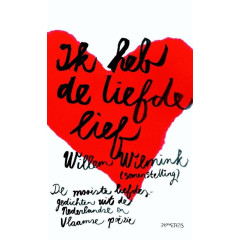 Ik heb
de liefde
lief
Willem Wilmink
(samenstelling)
De mooiste liefdes-
gedichten uit de
Nederlandse en
Vlaamse poëzie